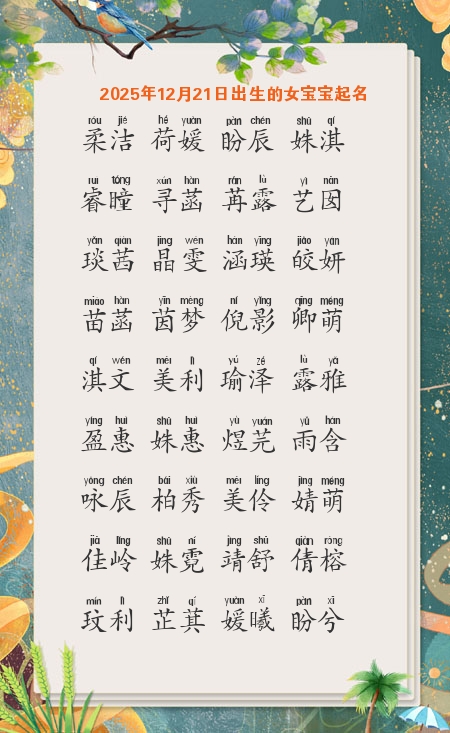 2025年12月21日出生的女宝宝起名
róu jié hé yuàn pàn chén shū qí
柔洁 荷媛 盼辰 姝淇
ruì tóng xún hàn rǎn lù yì nān
睿瞳 寻菡 苒露 艺囡
yǎn qiàn jīng wén hán yīng jiǎo yán
琰茜 晶雯 涵瑛 皎妍
miáo hàn yīn mèng ní yǐng qīng méng
苗菡 茵梦 倪影 卿萌
qí wén měi lì yú zé lù yǎ
淇文 美利 瑜泽 露雅
yíng huì shū huì yù yuán yǔ hán
盈惠 姝惠 煜芫 雨含
yǒng chén bǎi xiù měi líng jìng méng
咏辰 柏秀 美伶 婧萌
jiā lǐng shū ní jìng shū qiàn róng
佳岭 姝霓 靖舒 倩榕
mín lì zhǐ qí yuàn xī pàn xī
玟利 芷萁 媛曦 盼兮